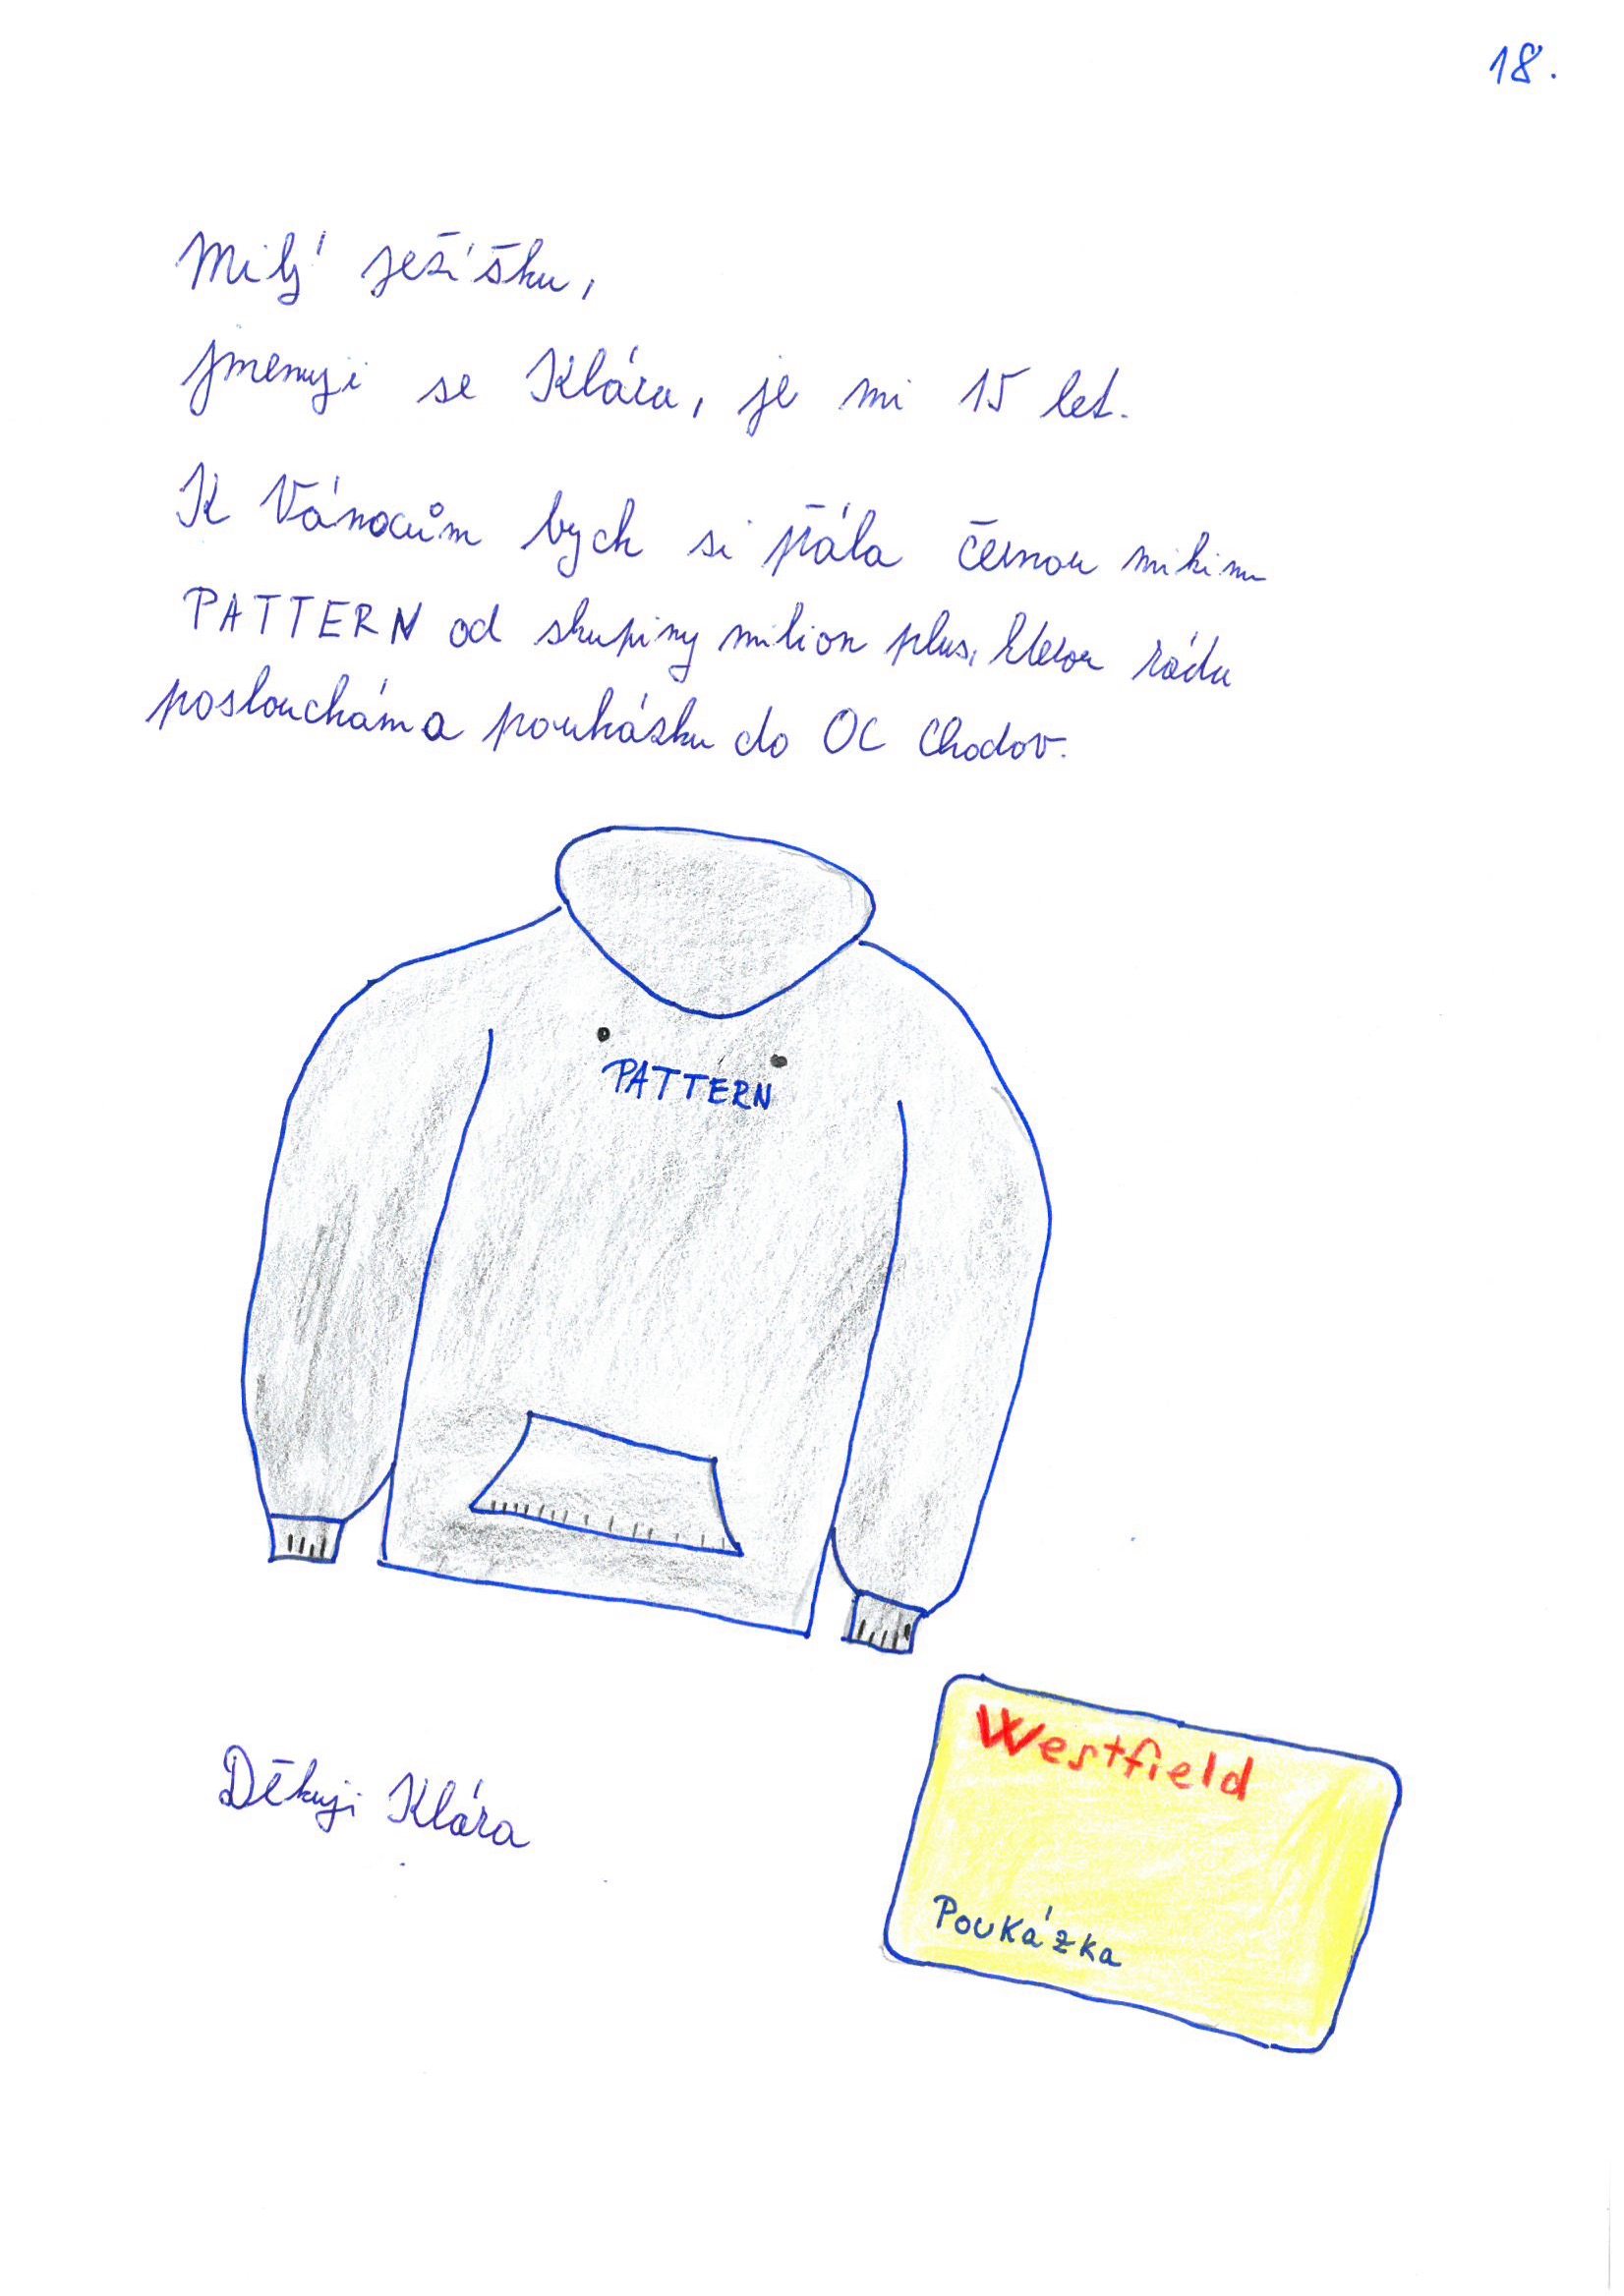 18.
Milý ježíšku,
jmenuji se Klára, je mi 15 let.
K Vánocům bych si přála černou mikinu
PATTERN od skupiny milion plus, kterou ráda
poslouchám a poukázku do OC Chodov.
PATTERN
Děkuji Klára
Westfield
Poukázka